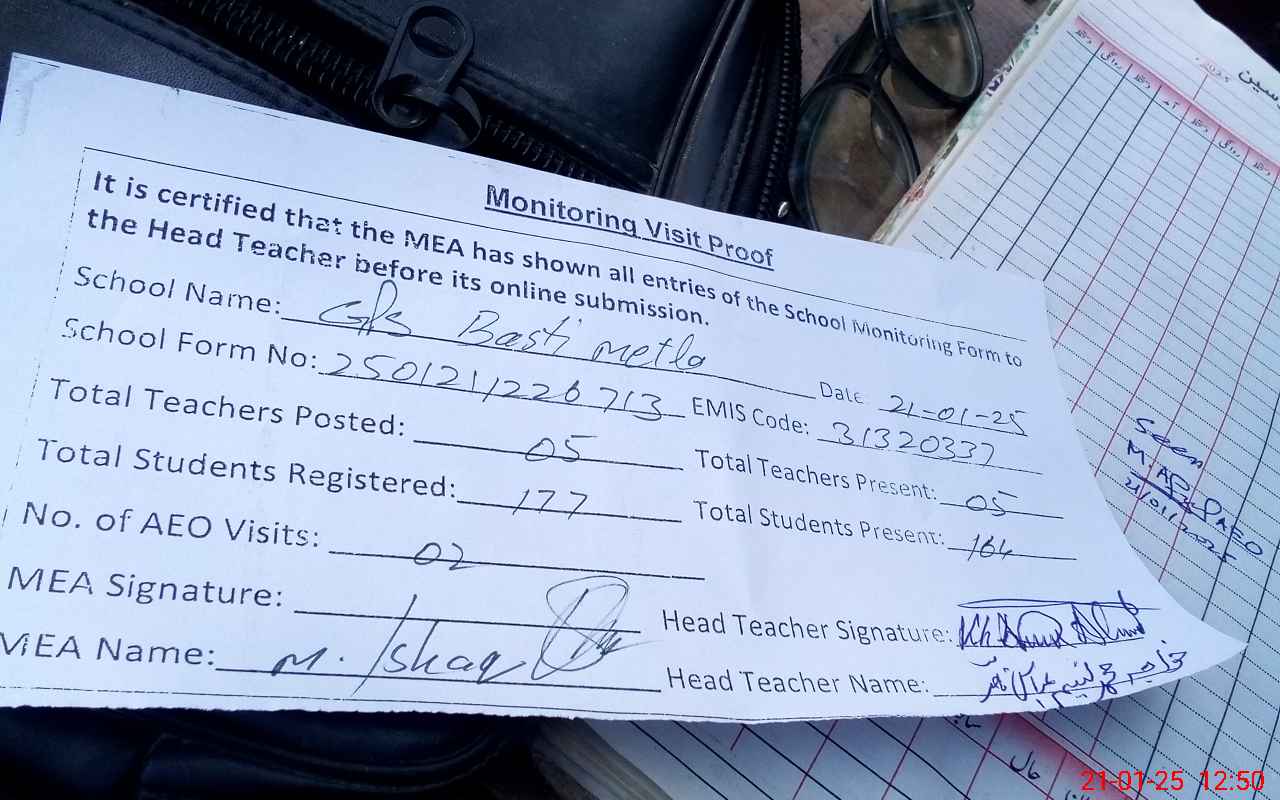 Monitoring Visit Proof
It is certified that the MEA has shown all entries of the School Monitoring Form to
the Head Teacher before its online submission.
School Name: GPS Basti Metla Date: 21-01-25
School Form No: 2501211226713 EMIS Code: 31320337
Total Teachers Posted: 05 Total Teachers Present: 05
Total Students Registered: 177 Total Students Present: 164
No. of AEO Visits: 02
MEA Signature: Head Teacher Signature:
MEA Name: M. Ishaq Head Teacher Name:
Seen
AEO
21/01/2025
21-01-25 12.50